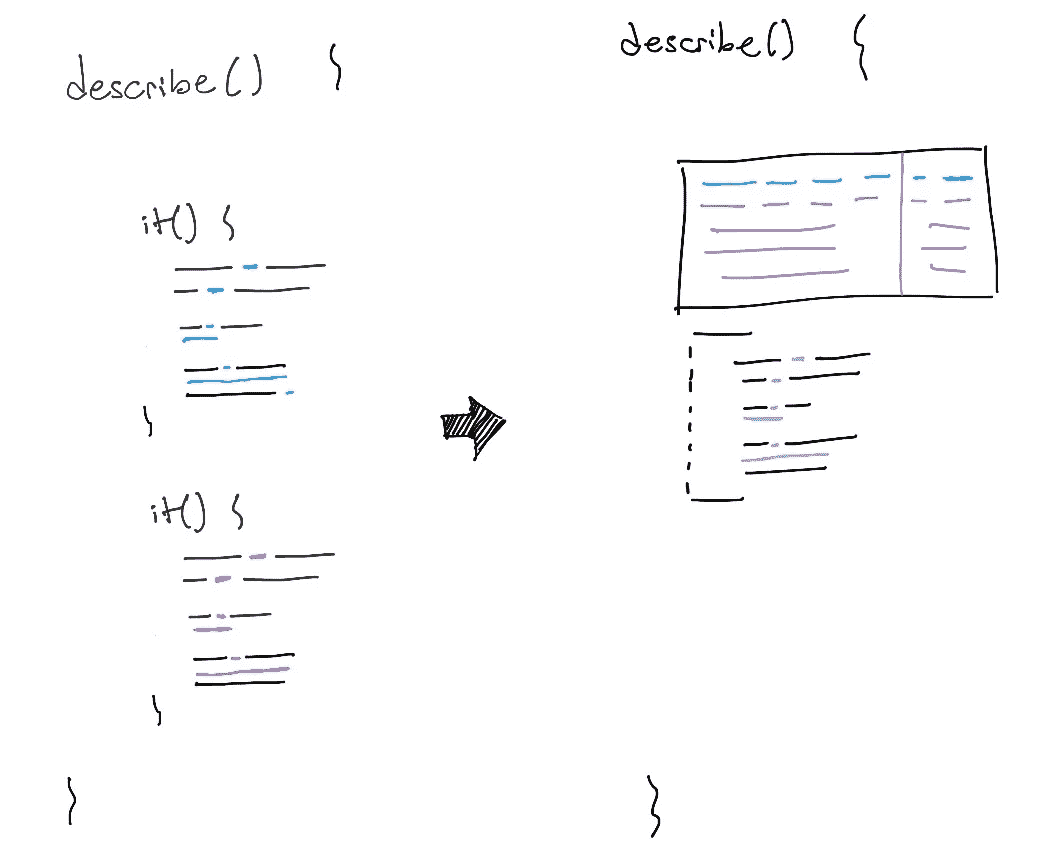 describe() {
it() {
}
it() {
}
}
describe() {
}